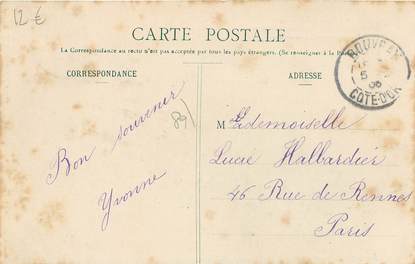 12 €
CARTE POSTALE
La Correspondance au recto n'est pas acceptée par tous les pays étrangers. (Se renseigner à la Poste)
CORRESPONDANCE
ADRESSE
ROUVRAY
5
06
COTE-D'OR
89/
Bon souvenir
Yvonne
Mademoiselle
Lucie Halbardier
46 Rue de Rennes
Paris